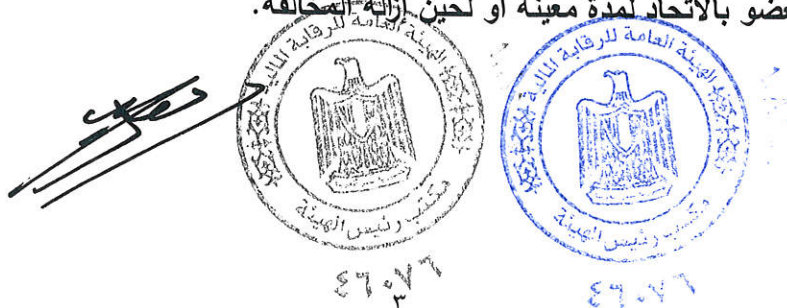 عضو بالاتحاد لمدة معينة أو لحين إزالة المخالفة.
الهيئة العامة للرقابة المالية
مكتب رئيس الهيئة
الهيئة العامة للرقابة المالية
مكتب رئيس الهيئة
٤٦٠٧٦
٤٦٠٧٦
٣